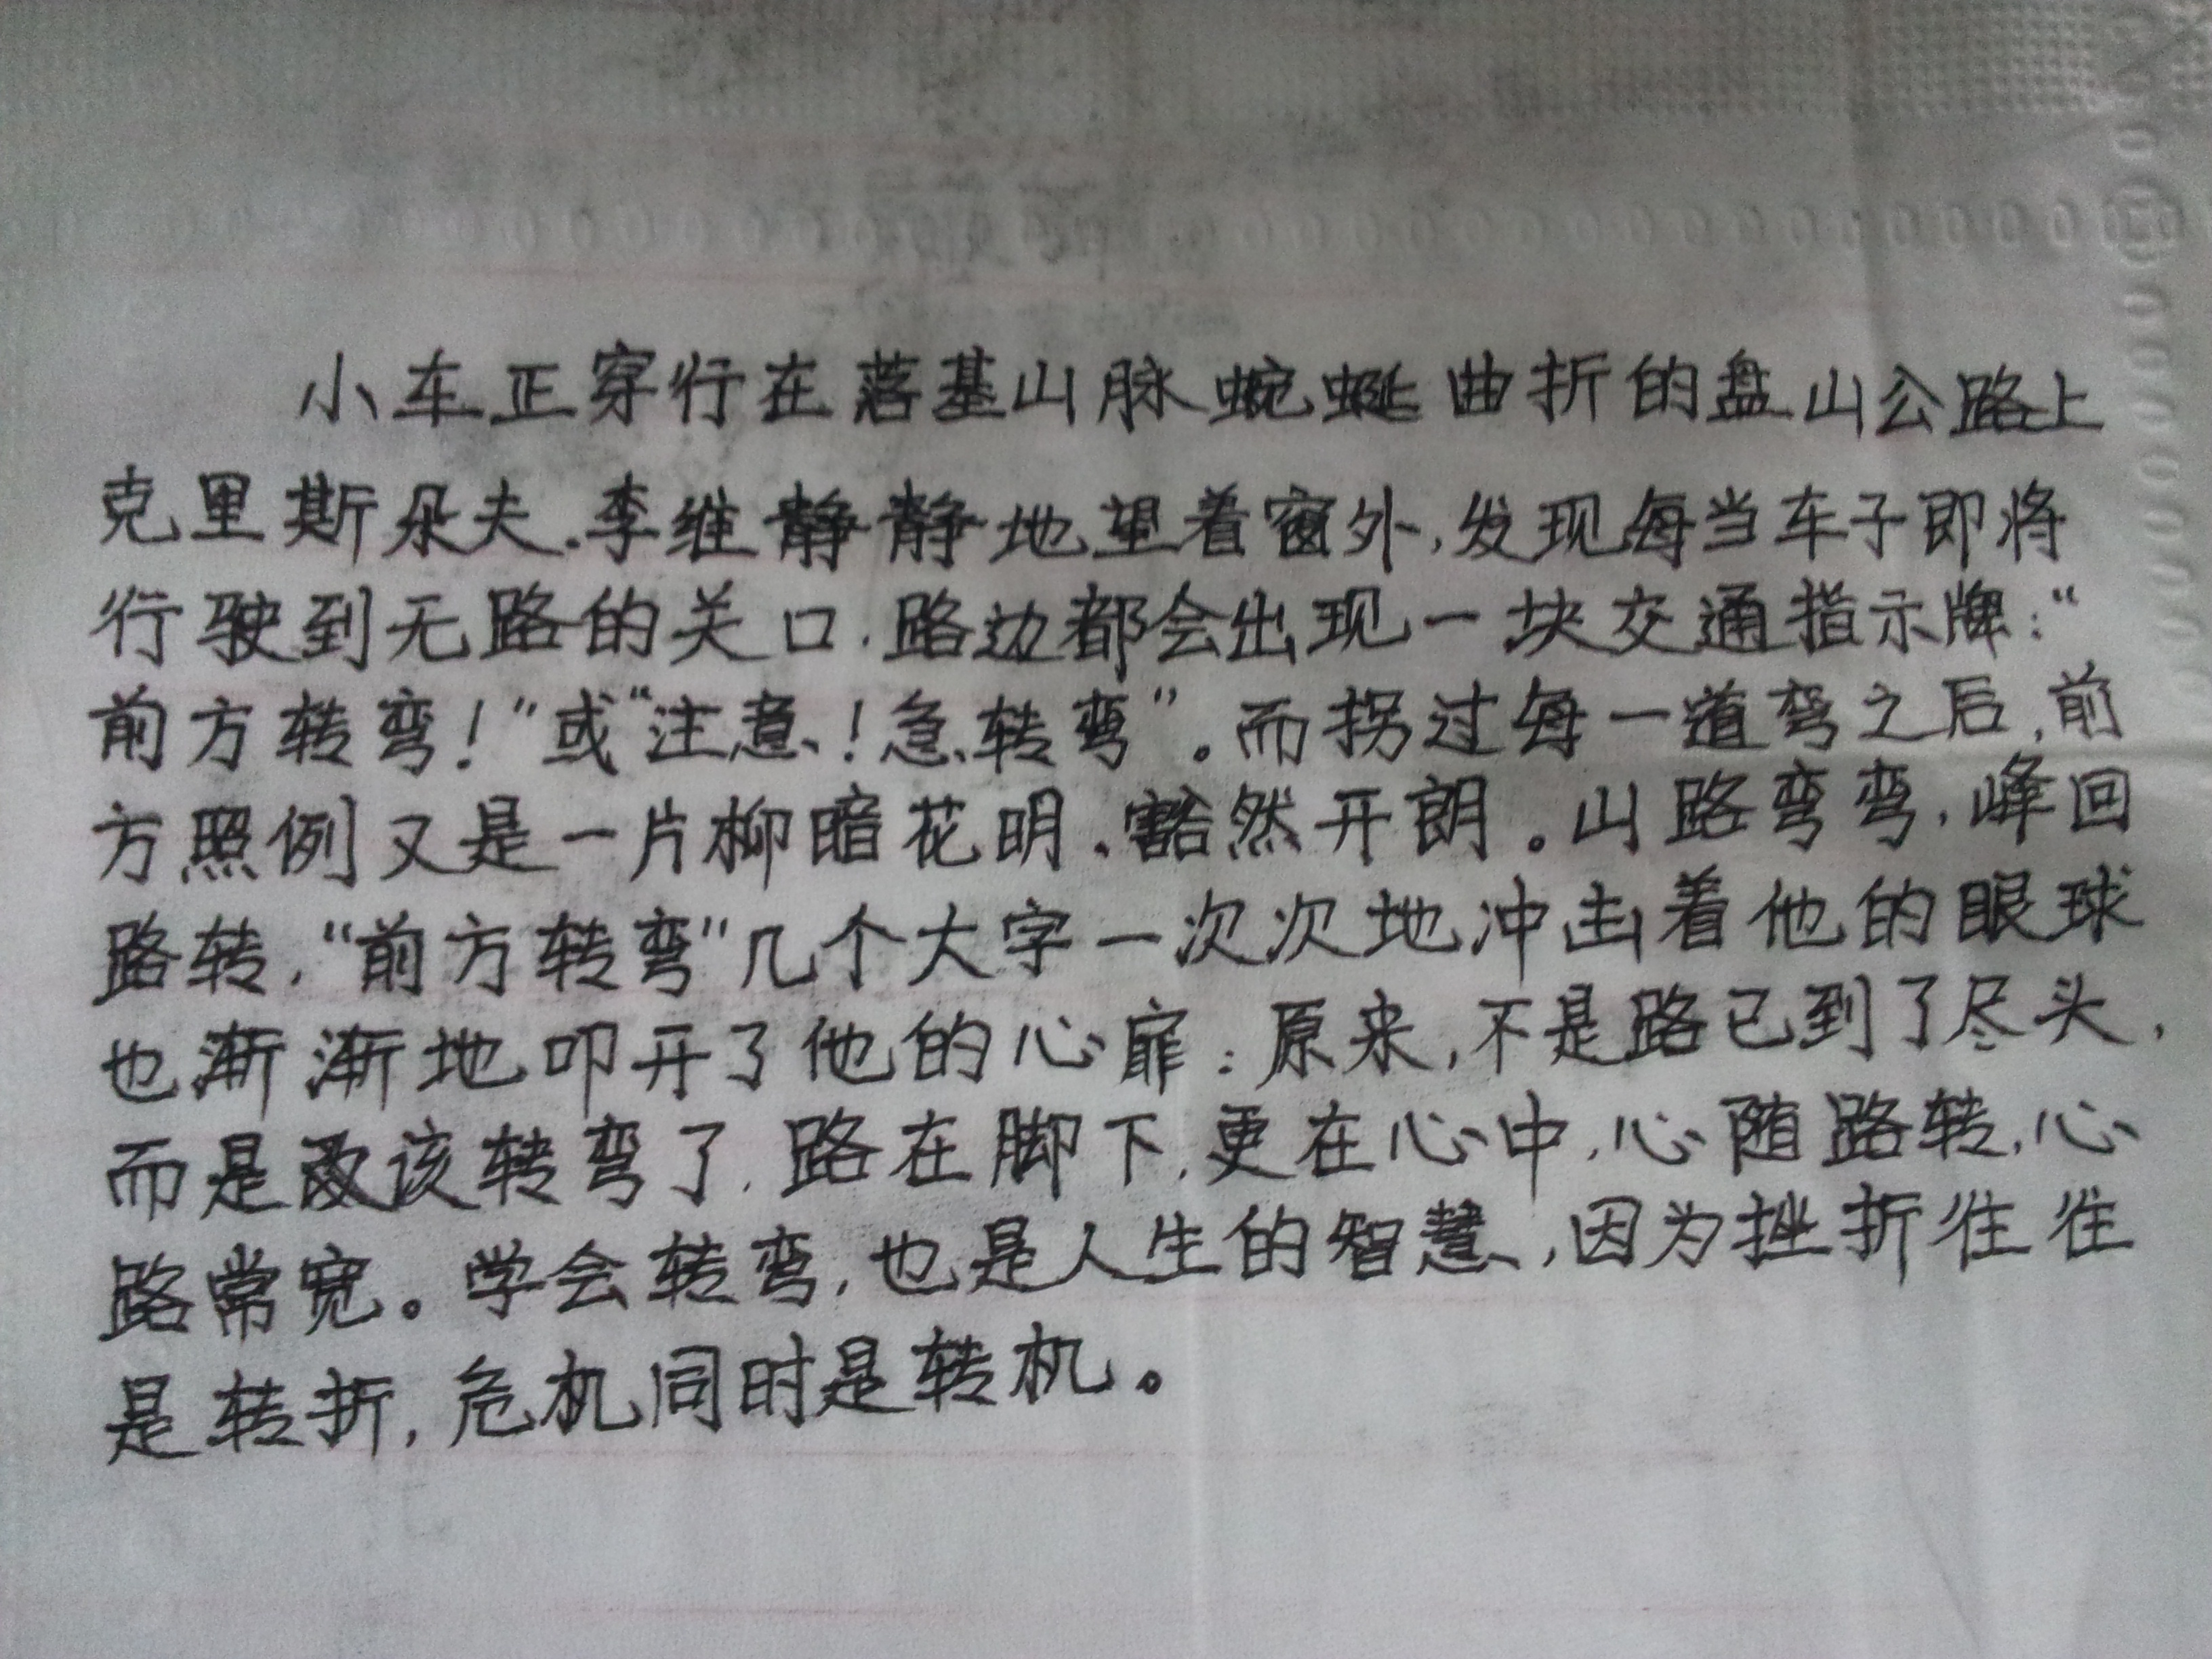 小车正穿行在落基山脉蜿蜒曲折的盘山公路上
克里斯朵夫.李维静静地望着窗外,发现每当车子即将
行驶到无路的关口,路边都会出现一块交通指示牌:“
前方转弯!”或“注意!急转弯”。而拐过每一道弯之后,前
方照例又是一片柳暗花明、豁然开朗。山路弯弯,峰回
路转,“前方转弯”几个大字一次次地冲击着他的眼球
也渐渐地叩开了他的心扉:原来,不是路已到了尽头,
而是该转弯了.路在脚下,更在心中,心随路转,心
路常宽。学会转弯,也是人生的智慧,因为挫折往往
是转折,危机同时是转机。